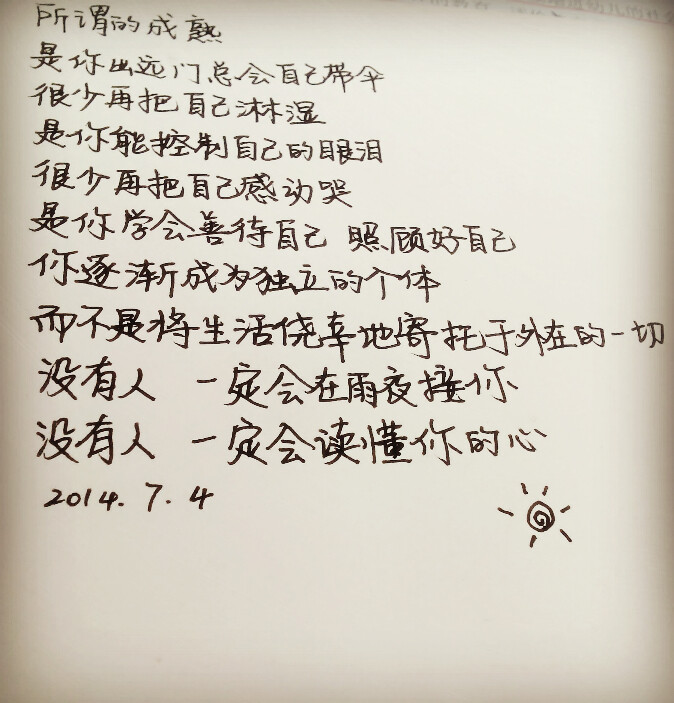 所谓的成熟
是你出远门总会自己带伞
很少再把自己淋湿
是你能控制自己的眼泪
很少再把自己感动哭
是你学会善待自己 照顾好自己
你逐渐成为独立的个体
而不是将生活侥幸地寄托于外在的一切
没有人 一定会在雨夜接你
没有人 一定会读懂你的心
2014.7.4